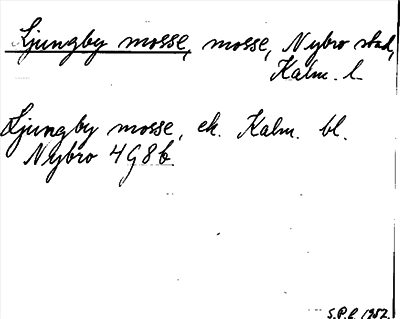 Ljungby mosse, mosse, Nybro stad,
Kalm. l.
Ljungby mosse, ek. Kalm. bl.
Nybro 4G8b.
S.P.L. 1952.